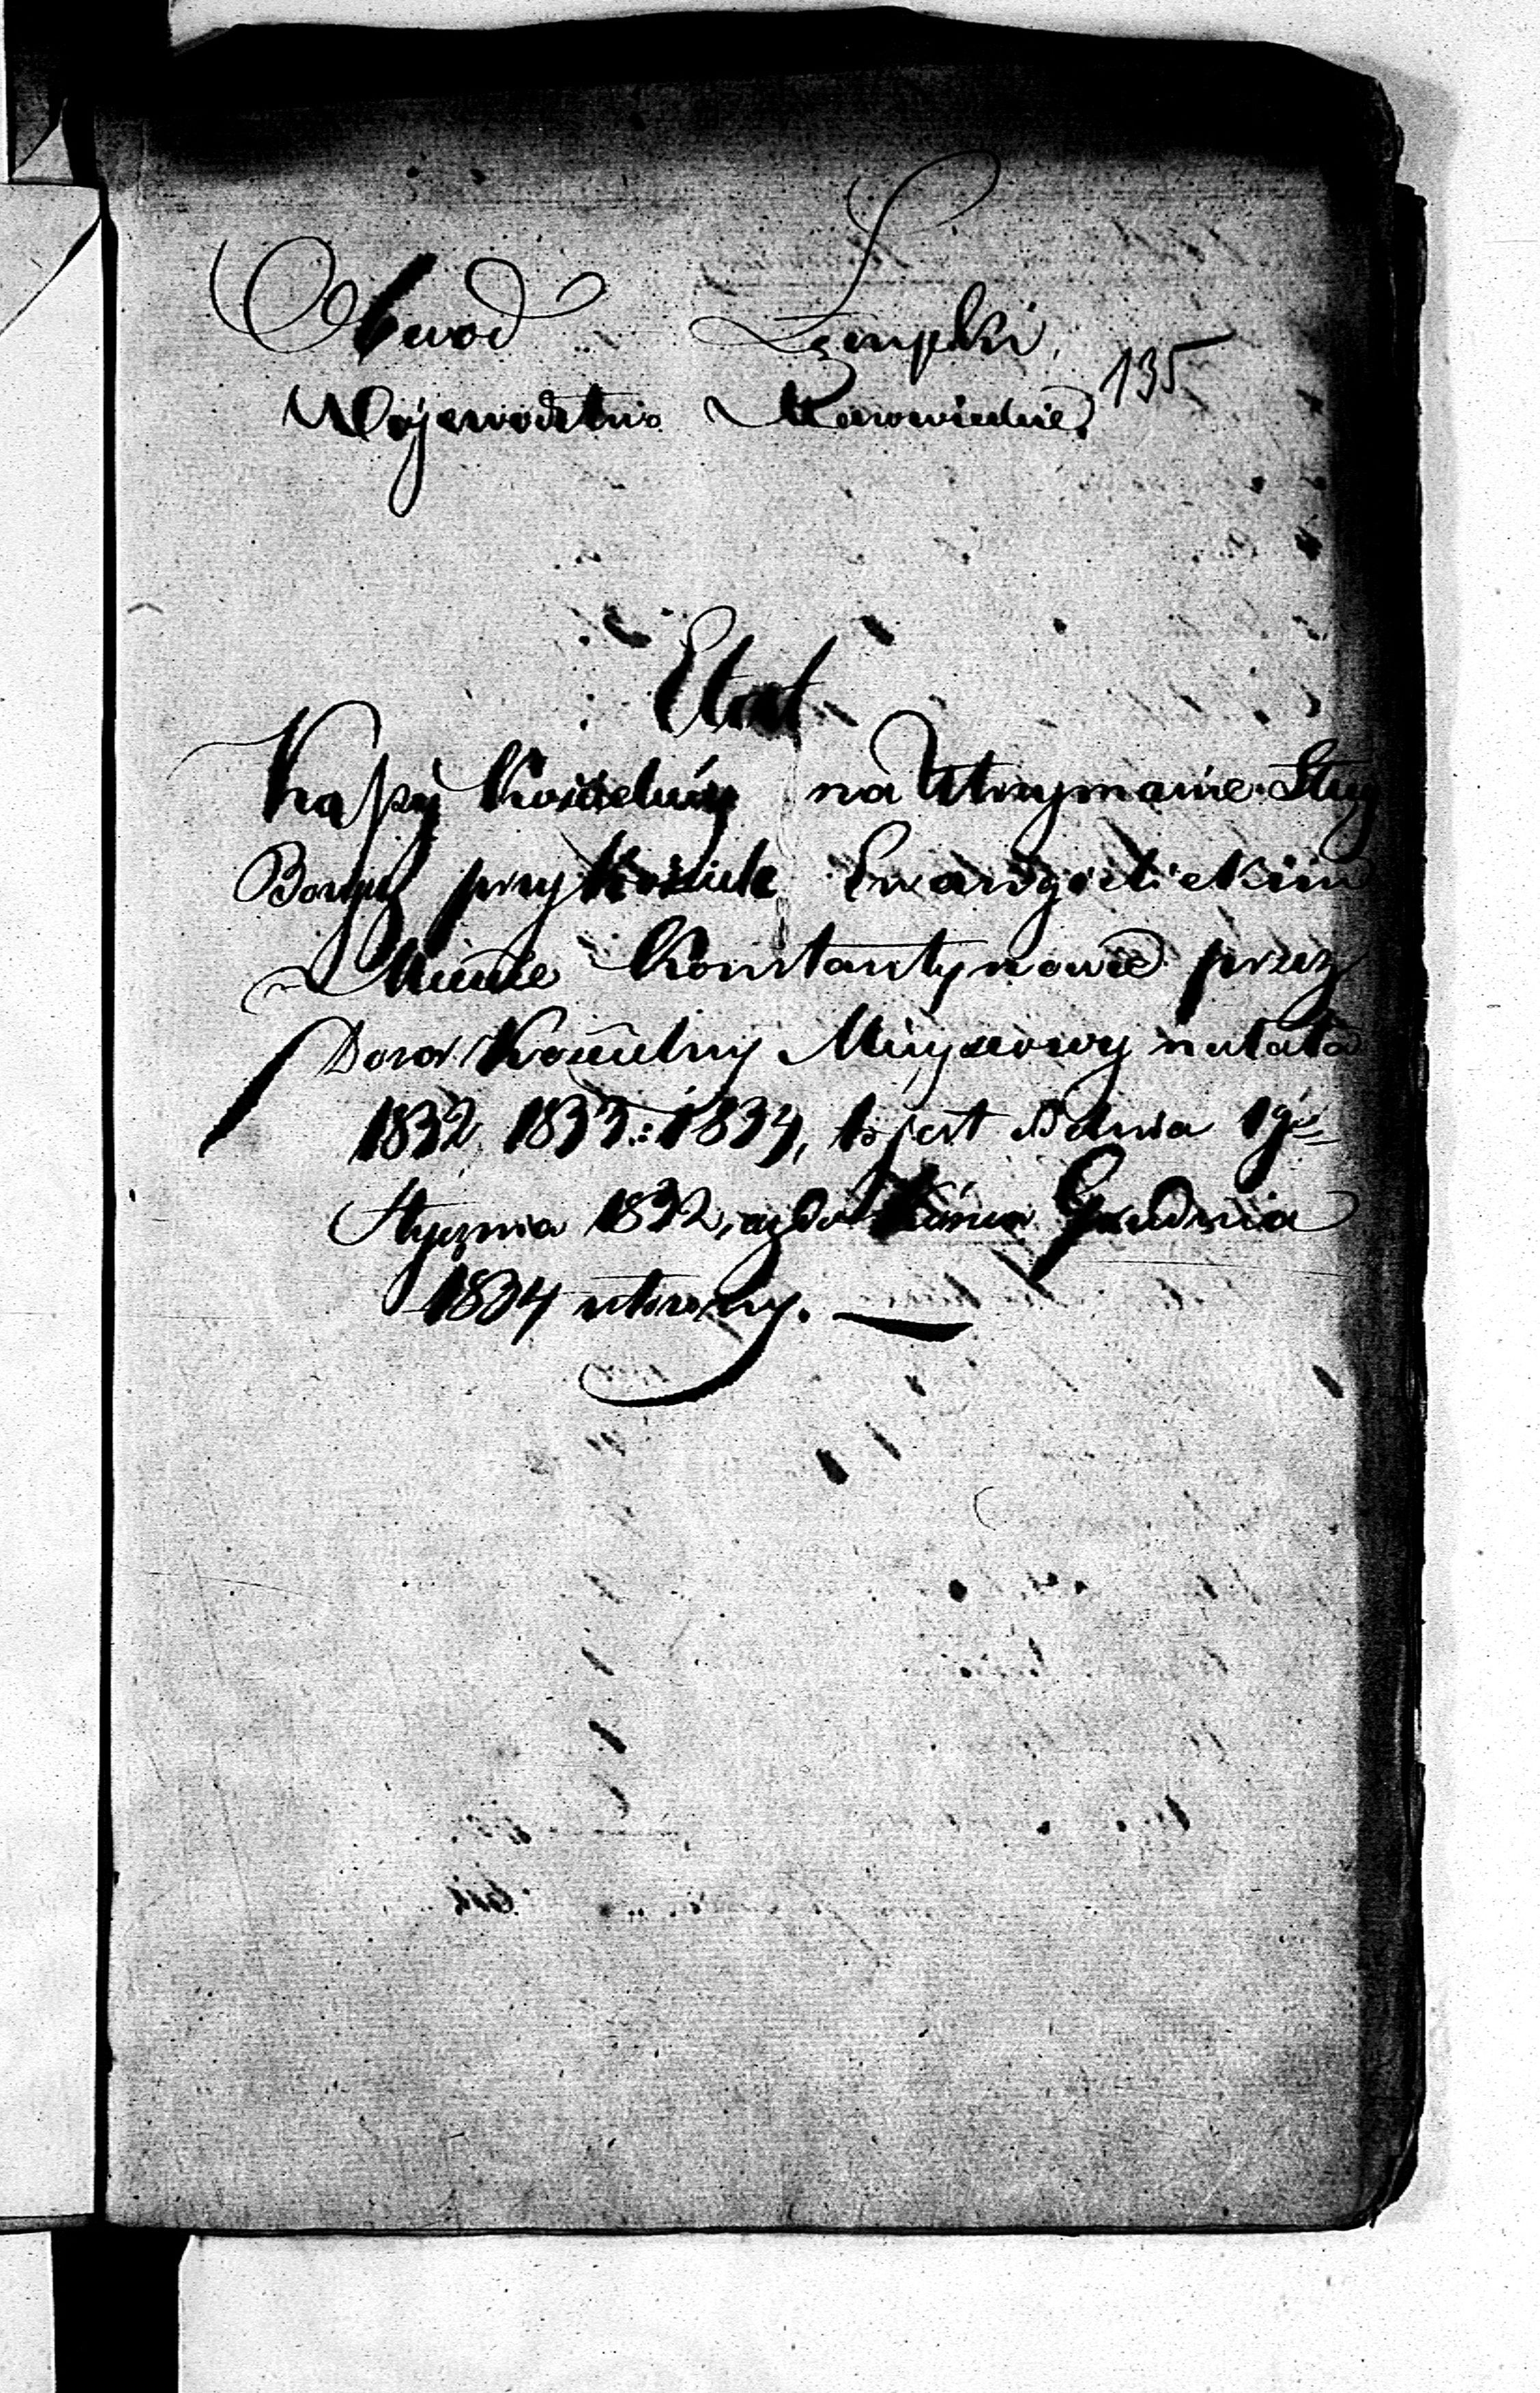 Obwod Łęczycki,
135
Wojewodztwo Mazowieckie.
Etat
Kassy Kościelnéy na Utrzymanie Sług
Bożych przy Kościele Ewangielickim
w Mieście Konstantynowie przez
Dozor Kościelny Mieyscowy na lata
1832, 1833 i 1834, to jest od dnia 1go
Stycznia 1832, aż do Końca Grudnia
1834 utworzony.